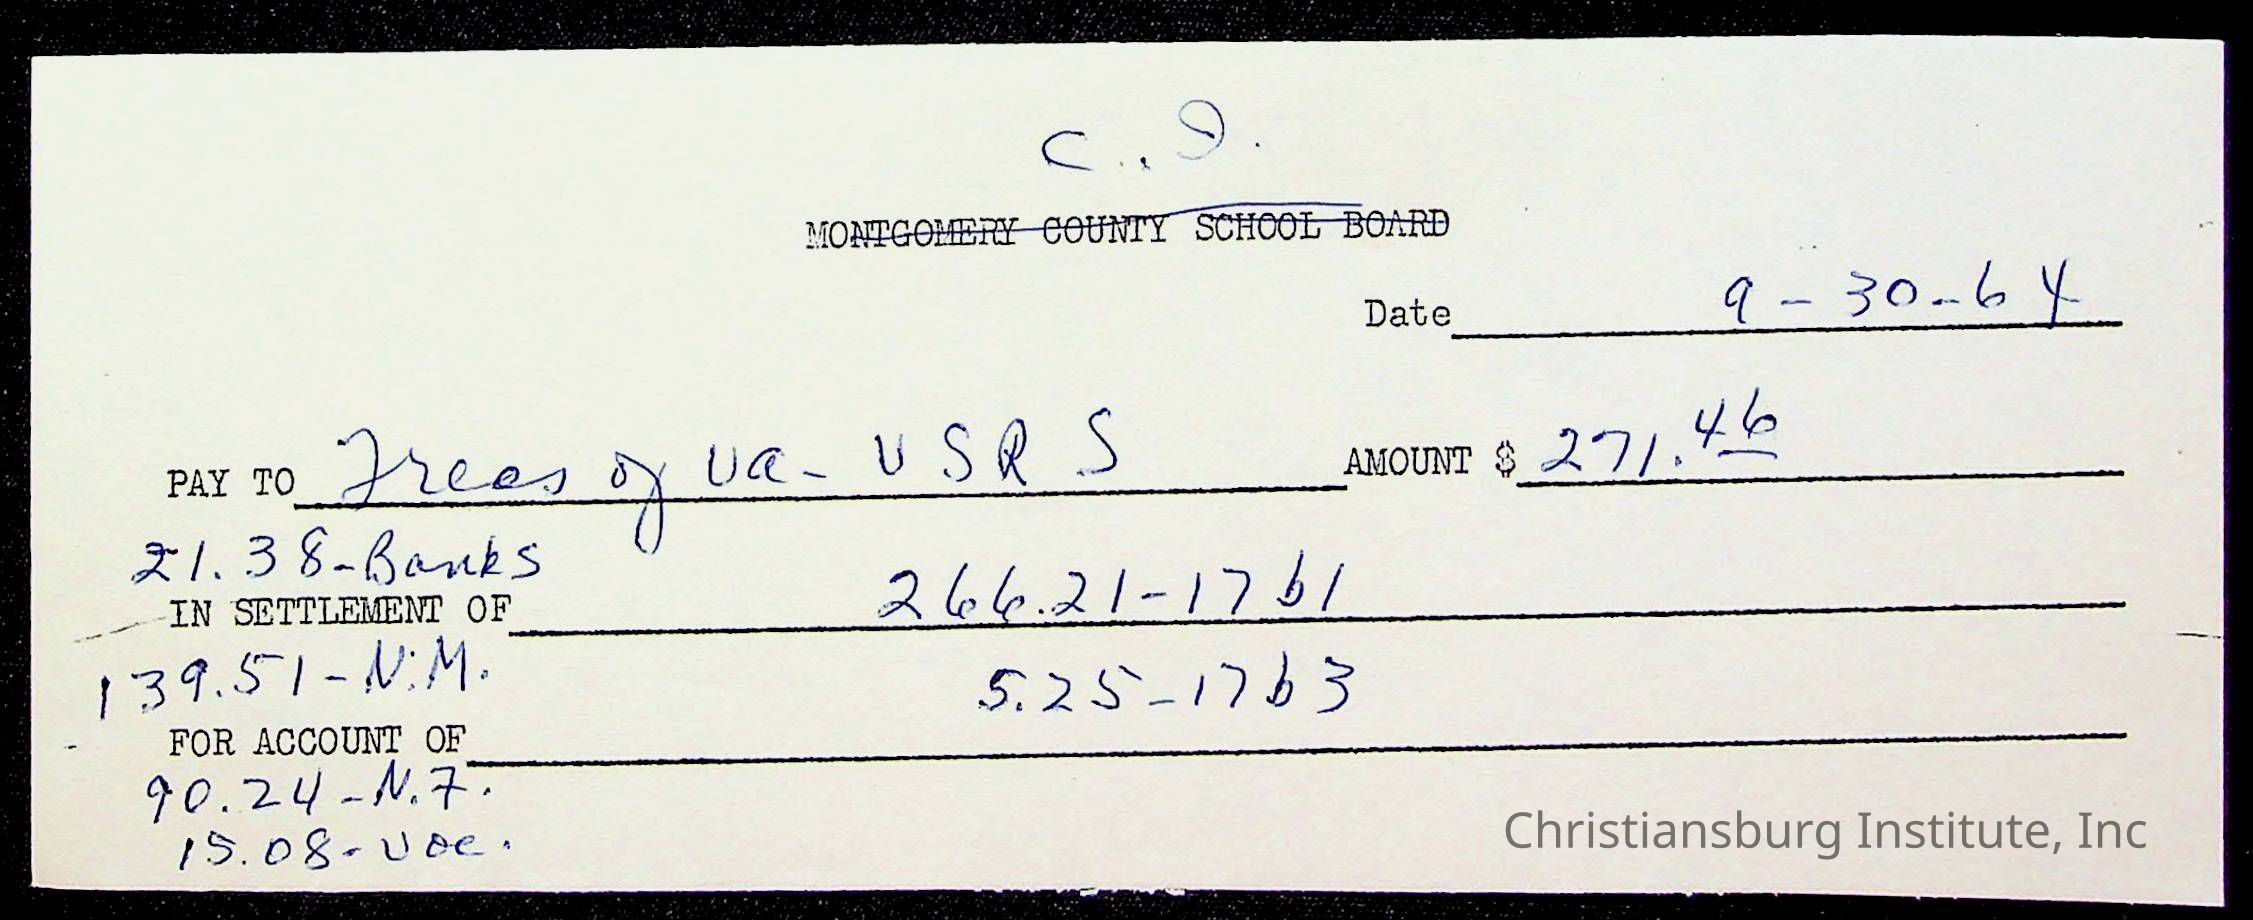 C.I.
MONTGOMERY COUNTY SCHOOL BOARD
Date 9-30-64
PAY TO Treas of Va- VSRS AMOUNT $ 271.46
21.38-Banks
IN SETTLEMENT OF 266.21-17b1
139.51-N.M. 5.25-17b3
FOR ACCOUNT OF
90.24-N.F.
15.08-Voc.
Christiansburg Institute, Inc